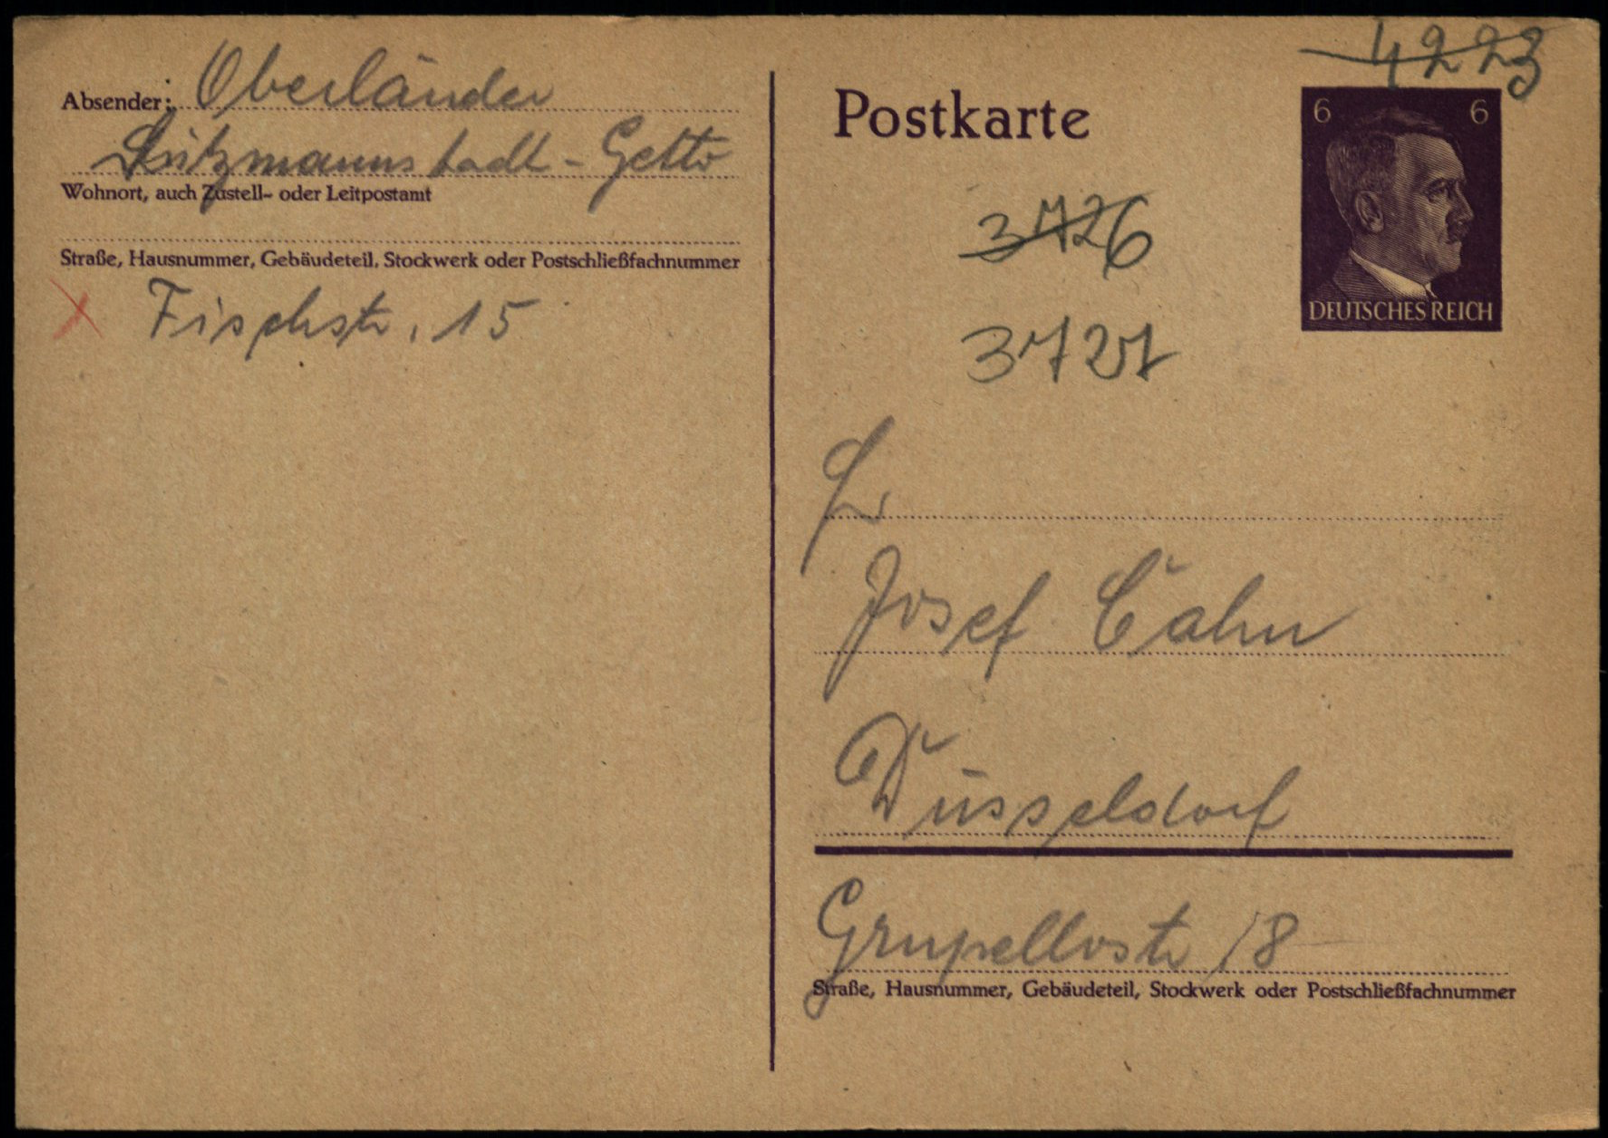 Absender: Oberländer
Litzmannstadt - Getto
Wohnort, auch Zustell- oder Leitpostamt
Straße, Hausnummer, Gebäudeteil, Stockwerk oder Postschließfachnummer
X Fischstr. 15
4223
Postkarte
6 6
DEUTSCHES REICH
3726
3727
Josef Cahn
Düsseldorf
Grupellostr 18
Straße, Hausnummer, Gebäudeteil, Stockwerk oder Postschließfachnummer